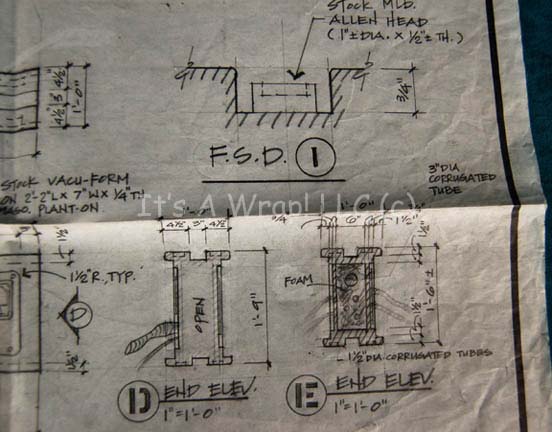 STOCK MLD.
ALLEN HEAD
(1"± DIA. X ½"± TH.)
4½"
3"
4½"
1'-0"
3/4"
F.S.D. 1
STOCK VACU-FORM
ON 2'-2"L X 7"W X ¼"TH
PLANT-ON.
3" DIA
CORRUGATED
TUBE
It's A Wrap! LLC (c)
4½" 3" 4½"
3/4
6"
1½"
1½"
1½"R., TYP.
FOAM
OPEN
D
1'-9"
1'-6"±
1½"
1½ DIA. CORRUGATED TUBES
D END ELEV.
1"=1'-0"
E END ELEV.
1"=1'-0"